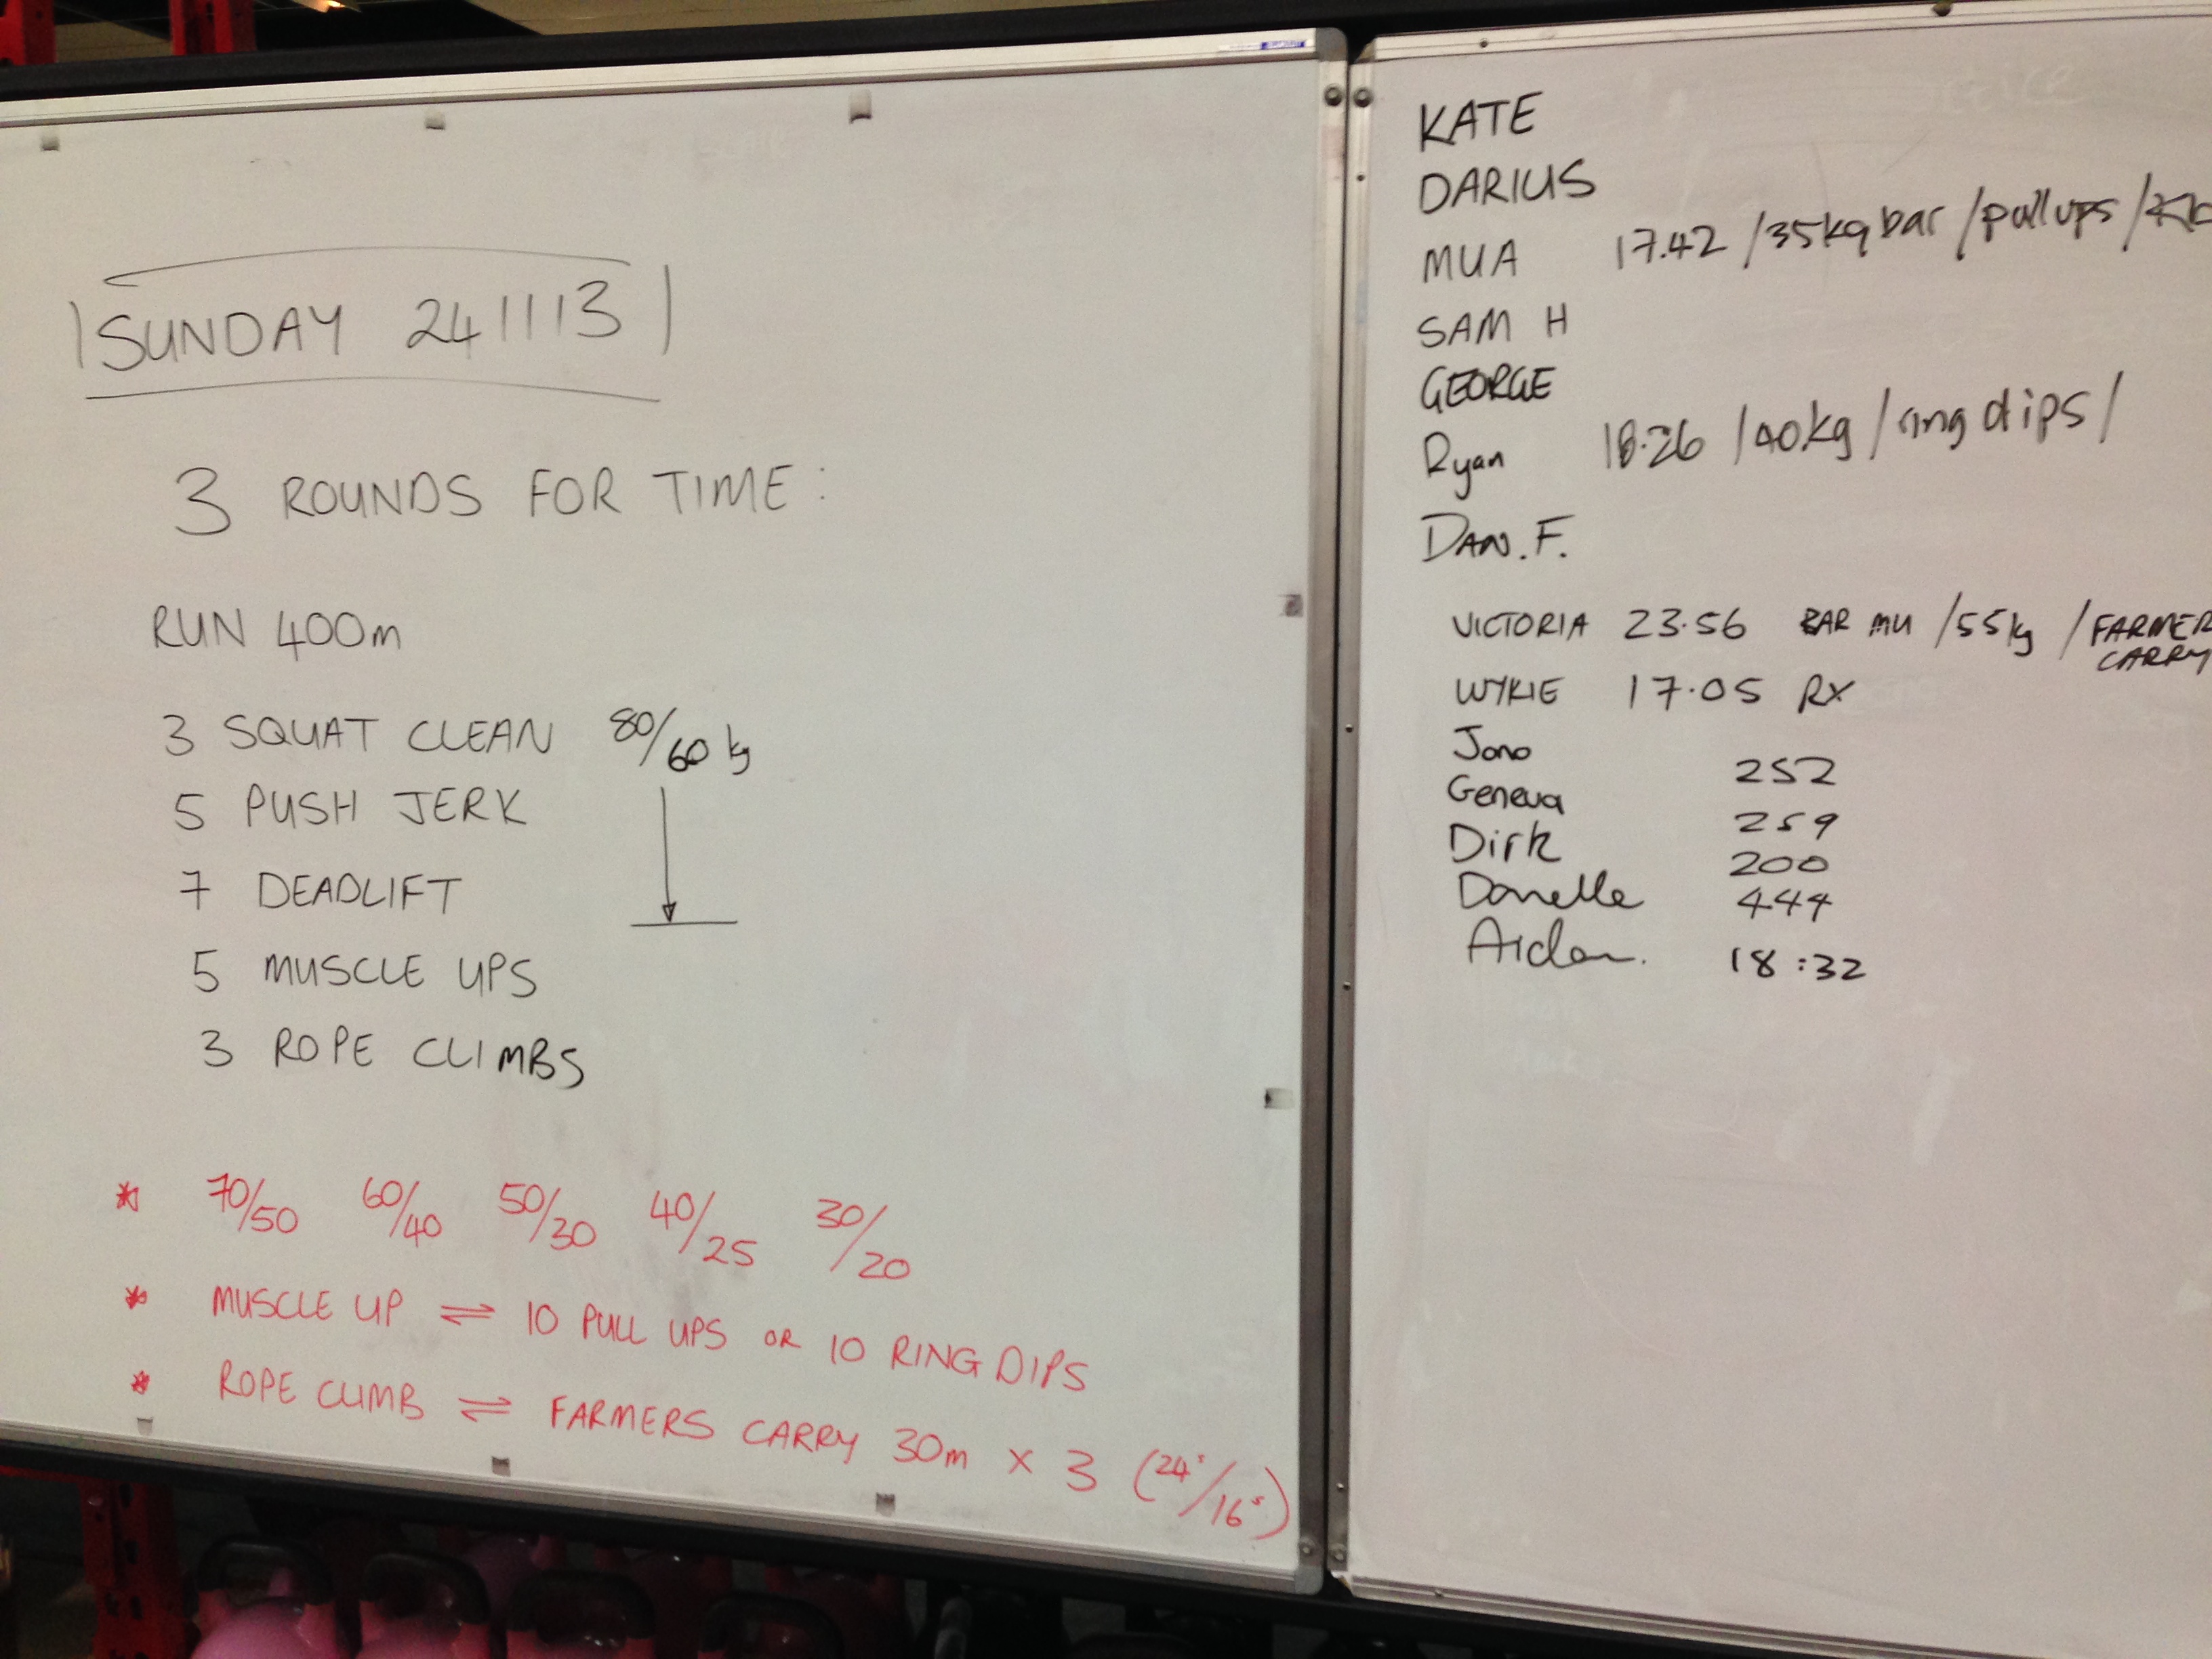 SUNDAY 241113
3 ROUNDS FOR TIME:
RUN 400m
3 SQUAT CLEAN 80/60 kg
5 PUSH JERK
7 DEADLIFT
5 MUSCLE UPS
3 ROPE CLIMBS
* 70/50 60/40 50/30 40/25 30/20
* MUSCLE UP ⇌ 10 PULL UPS OR 10 RING DIPS
* ROPE CLIMB ⇌ FARMERS CARRY 30m x 3 (24s/16s)
KATE
DARIUS
MUA 17.42 /35kg bar /pull ups /
SAM H
GEORGE
Ryan 18.26 /40kg /ring dips/
DAN. F.
VICTORIA 23.56 BAR MU /55kg /FARMER
CARRY
WYKIE 17.05 RX
Jono 252
Geneva 259
Dirk 200
Danelle 444
Aidan. 18:32